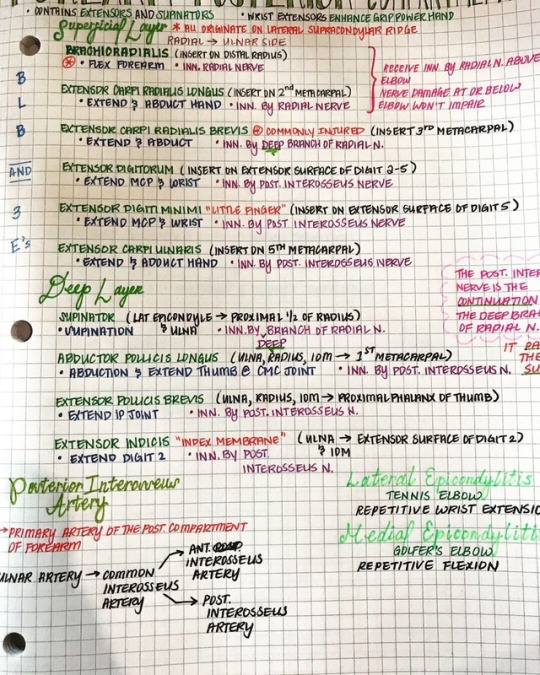 POSTERIOR COMPARTMENT
• CONTAINS EXTENSORS AND SUPINATORS • WRIST EXTENSORS ENHANCE GRIP POWER HAND
Superficial Layer * ALL ORIGINATE ON LATERAL SUPRACONDYLAR RIDGE
RADIAL → ULNAR SIDE
BRACHIORADIALIS (INSERT ON DISTAL RADIUS)
* • FLEX FOREARM • INN. RADIAL NERVE
RECEIVE INN. BY RADIAL N. ABOVE
ELBOW
NERVE DAMAGE AT OR BELOW
ELBOW WON'T IMPAIR
B
EXTENSOR CARPI RADIALIS LONGUS (INSERT ON 2nd METACARPAL)
L • EXTEND & ABDUCT HAND • INN. BY RADIAL NERVE
B EXTENSOR CARPI RADIALIS BREVIS COMMONLY INJURED (INSERT 3RD METACARPAL)
• EXTEND & ABDUCT • INN. BY DEEP BRANCH OF RADIAL N.
AND EXTENSOR DIGITORUM (INSERT ON EXTENSOR SURFACE OF DIGIT 2-5)
• EXTEND MCP & WRIST • INN. BY POST. INTEROSSEUS NERVE
3 EXTENSOR DIGITI MINIMI "LITTLE FINGER" (INSERT ON EXTENSOR SURFACE OF DIGIT 5)
• EXTEND MCP & WRIST • INN. BY POST INTEROSSEUS NERVE
E's EXTENSOR CARPI ULNARIS (INSERT ON 5TH METACARPAL)
• EXTEND & ADDUCT HAND • INN. BY POST. INTEROSSEUS NERVE
Deep Layer
THE POST. INTER
NERVE IS THE
CONTINUATION
THE DEEP BRA
OF RADIAL N.
SUPINATOR (LAT EPICONDYLE → PROXIMAL 1/2 OF RADIUS)
& ULNA
• INN. BY BRANCH OF RADIAL N.
DEEP
IT PA
THE
SU
ABDUCTOR POLLICIS LONGUS (ULNA, RADIUS, IOM → 1ST METACARPAL)
• ABDUCTION & EXTEND THUMB @ CMC JOINT • INN. BY POST. INTEROSSEUS N.
EXTENSOR POLLICIS BREVIS (ULNA, RADIUS, IOM → PROXIMAL PHALANX OF THUMB)
• EXTEND IP JOINT • INN. BY POST. INTEROSSEUS N.
EXTENSOR INDICIS "INDEX MEMBRANE" (ULNA → EXTENSOR SURFACE OF DIGIT 2)
& IOM
• EXTEND DIGIT 2 • INN. BY POST.
INTEROSSEUS N.
Posterior Interosseus
Artery
→ PRIMARY ARTERY OF THE POST. COMPARTMENT
OF FOREARM
ULNAR ARTERY → COMMON
INTEROSSEUS
ARTERY
ANT.
INTEROSSEUS
ARTERY
POST.
INTEROSSEUS
ARTERY
Lateral Epicondylitis
TENNIS ELBOW
REPETITIVE WRIST EXTENSIO
Medial Epicondyliti
GOLFER'S ELBOW
REPETITIVE FLEXION